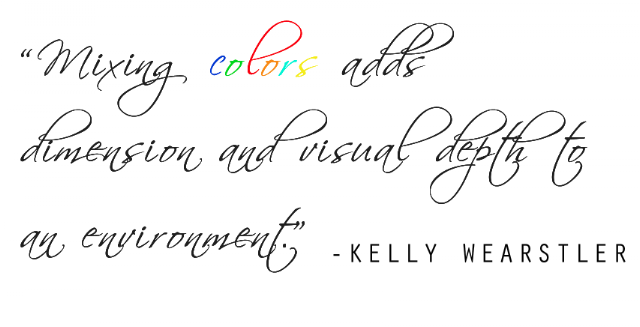 “Mixing colors adds
dimension and visual depth to
an environment.”
-KELLY WEARSTLER